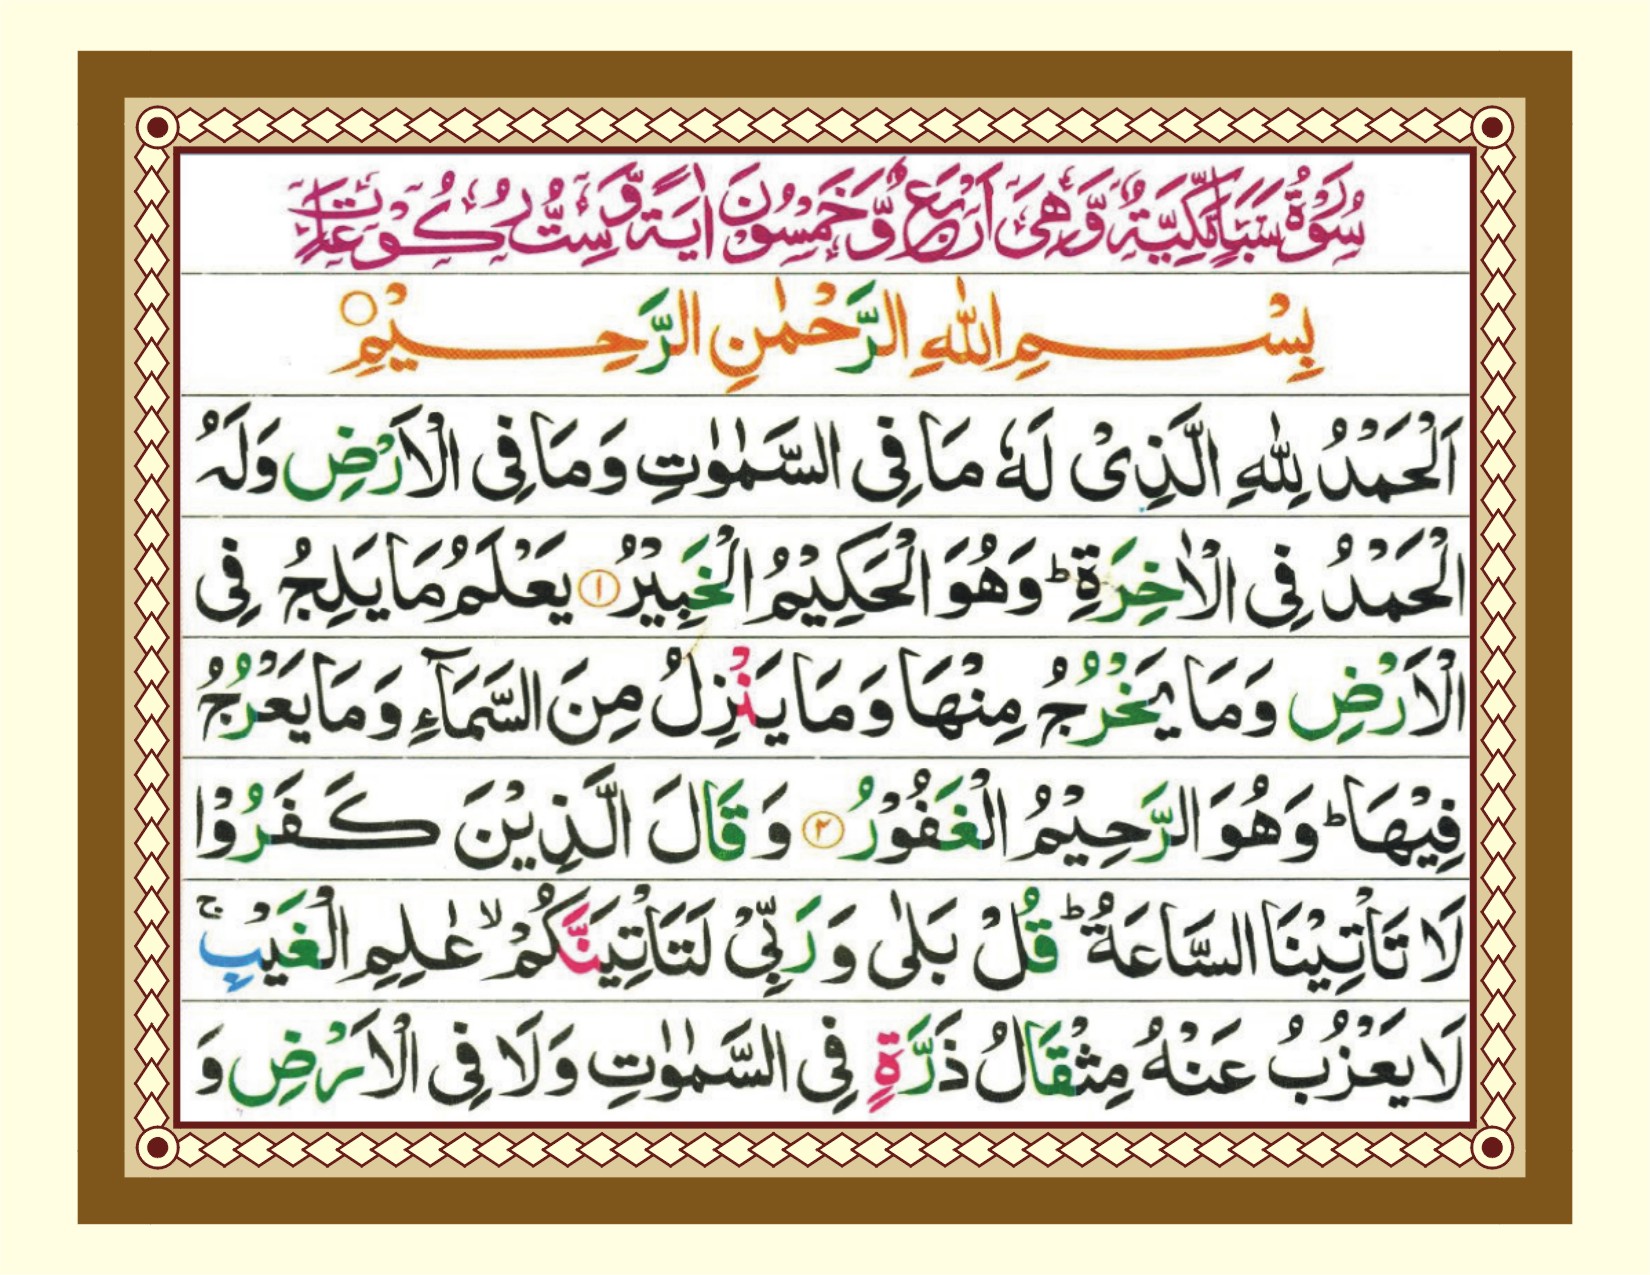 سُوْرَةُ سَبَاٍ مَّكِّيَّةٌ وَّهِیَ اَرْبَعٌ وَّخَمْسُوْنَ اٰيَةً وَّسِتُّ رُكُوْعَاتٍ
بِسْمِ اللّٰهِ الرَّحْمٰنِ الرَّحِيْمِ ○
اَلْحَمْدُ لِلّٰهِ الَّذِیْ لَهٗ مَا فِی السَّمٰوٰتِ وَمَا فِی الْاَرْضِ وَلَهُ
الْحَمْدُ فِی الْاٰخِرَةِ ؕ وَهُوَ الْحَكِيْمُ الْخَبِيْرُ ۝۱ يَعْلَمُ مَا يَلِجُ فِی
الْاَرْضِ وَمَا يَخْرُجُ مِنْهَا وَمَا يَنْزِلُ مِنَ السَّمَآءِ وَمَا يَعْرُجُ
فِيْهَا ؕ وَهُوَ الرَّحِيْمُ الْغَفُوْرُ ۝۲ وَقَالَ الَّذِيْنَ كَفَرُوْا
لَا تَاْتِيْنَا السَّاعَةُ ؕ قُلْ بَلٰی وَرَبِّیْ لَتَاْتِيَنَّكُمْ ۙ عٰلِمِ الْغَيْبِ ۚ
لَا يَعْزُبُ عَنْهُ مِثْقَالُ ذَرَّةٍ فِی السَّمٰوٰتِ وَلَا فِی الْاَرْضِ وَ